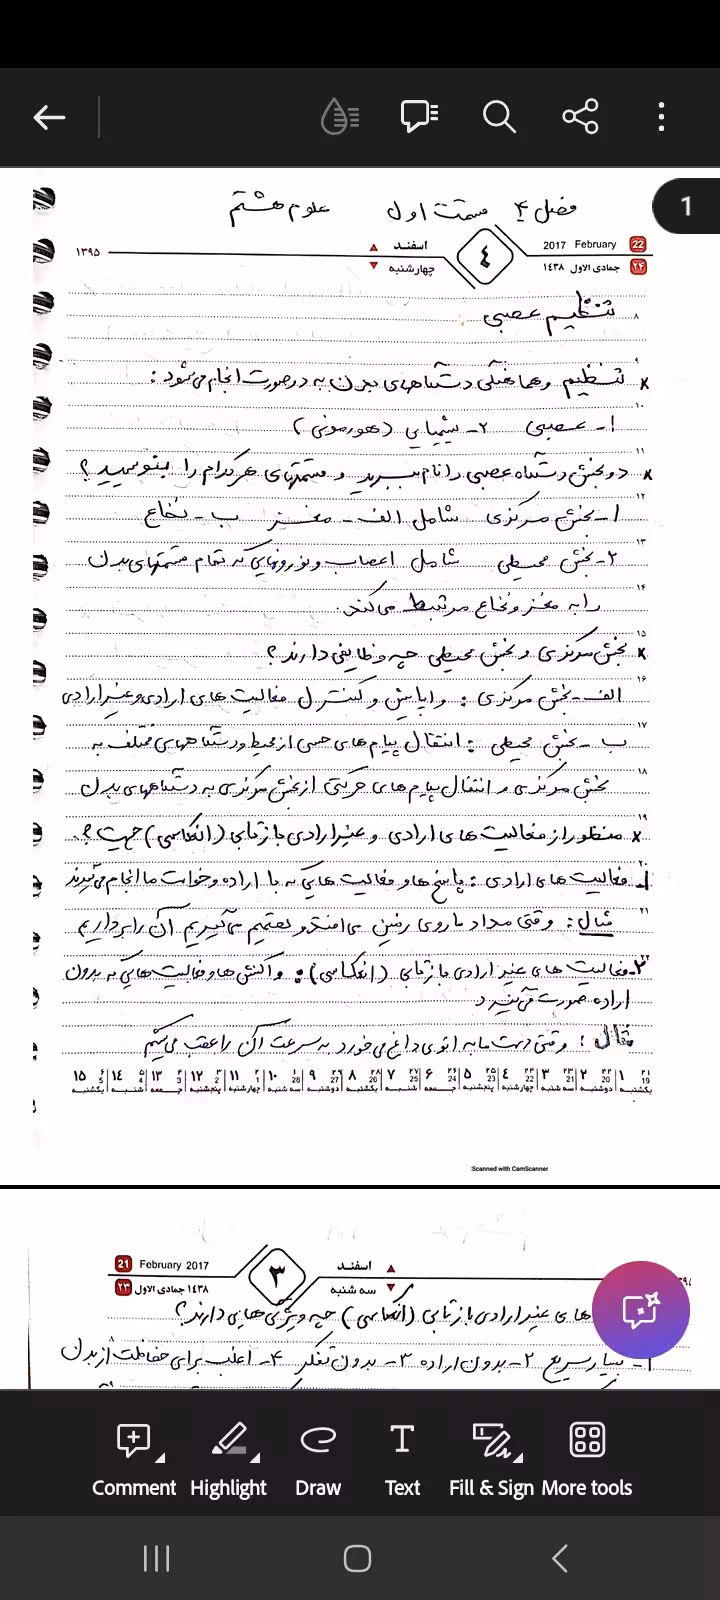 1
علوم هشتم قسمت اول فصل ۴
۱۳۹۵ اسفند ۴ 2017 February 22
چهارشنبه ۱۴۳۸ جمادی الاول ۲۴
تنظیم عصبی
۸
۹
× تنظیم و هماهنگی دستگاههای بدن به دو صورت انجام می‌شود :
۱۰
۱- عصبی ۲- شیمیایی (هورمونی)
۱۱
× دو بخش دستگاه عصبی را نام ببرید و قسمتهای هر کدام را بنویسید ؟
۱۲
۱- بخش مرکزی شامل الف- مغز ب- نخاع
۱۳
۲- بخش محیطی شامل اعصاب و نورونهایی که تمام قسمتهای بدن
۱۴
را به مغز و نخاع مرتبط می‌کند.
۱۵
× بخش مرکزی و بخش محیطی چه وظایفی دارند ؟
۱۶
الف- بخش مرکزی : و پایش و کنترل فعالیت های ارادی و غیر ارادی
۱۷
ب- بخش محیطی : انتقال پیام های حسی از محیط و دستگاههای مختلف به
۱۸
بخش مرکزی و انتقال پیام های حرکتی از بخش مرکزی به دستگاههای بدن
۱۹
× منظور از فعالیت های ارادی و غیر ارادی بازتابی (انعکاسی) چیست ؟
۲۰
۱- فعالیت های ارادی : پاسخ ها و فعالیت هایی که با اراده و خواست ما انجام می‌گیرند
۲۱
مثال : وقتی مداد ما روی زمین می‌افتد و تصمیم می‌گیریم آن را برداریم
۲- فعالیت های غیر ارادی بازتابی (انعکاسی) : واکنش ها و فعالیت هایی که بدون
اراده صورت می‌گیرد
مثال : وقتی دست ما به اتوی داغ می‌خورد به سرعت آن را عقب می‌کشیم
۱ ۲ ۳ ۴ ۵ ۶ ۷ ۸ ۹ ۱۰ ۱۱ ۱۲ ۱۳ ۱۴ ۱۵
یکشنبه دوشنبه سه شنبه چهارشنبه پنجشنبه جمعه شنبه یکشنبه دوشنبه سه شنبه چهارشنبه پنجشنبه جمعه شنبه یکشنبه
Scanned with CamScanner
21 February 2017 ۳ اسفند
۲۳ جمادی الاول ۱۴۳۸ سه شنبه
های غیر ارادی بازتابی (انعکاسی) چه ویژگی هایی دارند ؟
۱- بسیار سریع ۲- بدون اراده ۳- بدون تفکر ۴- اغلب برای حفاظت از بدن
Comment Highlight Draw Text Fill & Sign More tools